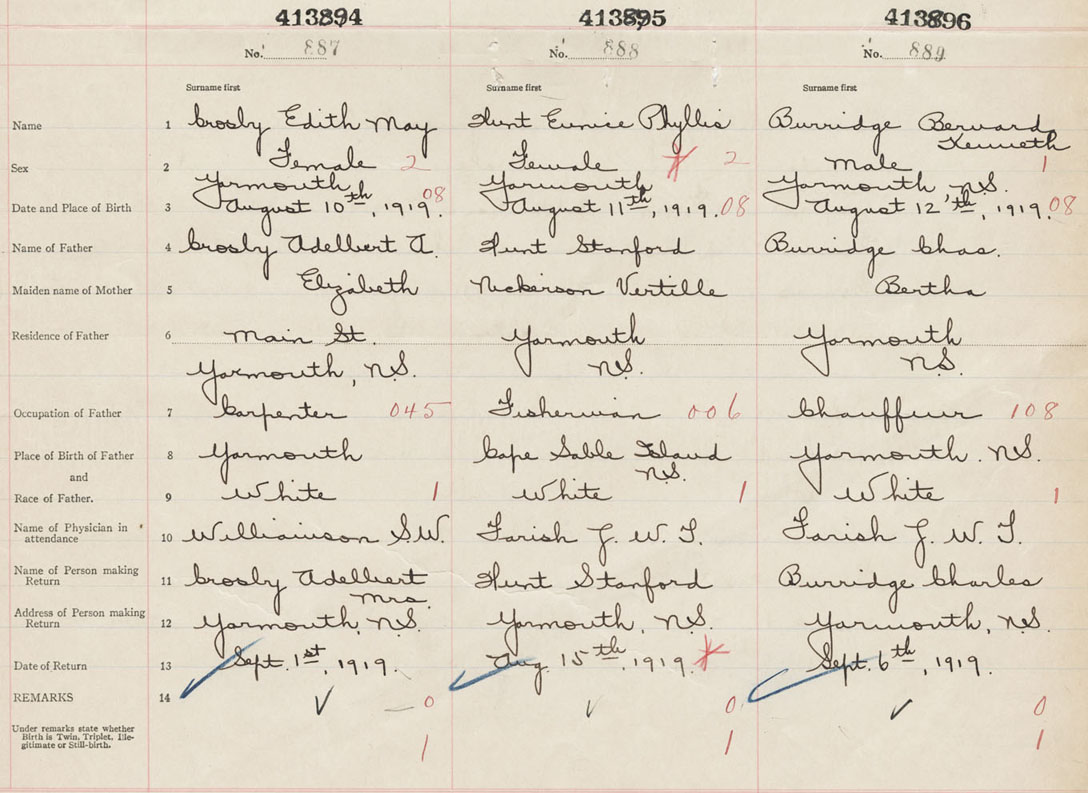 413894 413895 413896
No. 887 No. 888 No. 889
Surname first Surname first Surname first
Name 1 Crosby Edith May Hunt Eunice Phyllis Burridge Bernard
Kenneth
Sex 2 Female 2 Female 2 Male 1
Yarmouth Yarmouth Yarmouth N.S.
Date and Place of Birth 3 August 10th, 1919. 08 August 11th, 1919. 08 August 12th, 1919. 08
Name of Father 4 Crosby Adelbert A. Hunt Stanford Burridge Chas.
Maiden name of Mother 5 Elizabeth Nickerson Vertille Bertha
Residence of Father 6 Main St. Yarmouth Yarmouth
Yarmouth, N.S. N.S. N.S.
Occupation of Father 7 Carpenter 045 Fisherman 006 Chauffeur 108
Place of Birth of Father 8 Yarmouth Cape Sable Island Yarmouth. N.S.
and N.S.
Race of Father. 9 White 1 White 1 White 1
Name of Physician in
attendance 10 Williamson S.W. Farish J. W. T. Farish J. W. T.
Name of Person making
Return 11 Crosby Adelbert Hunt Stanford Burridge Charles
Mrs.
Address of Person making
Return 12 Yarmouth, N.S. Yarmouth, N.S. Yarmouth, N.S.
Date of Return 13 Sept. 1st, 1919. Aug. 15th, 1919. Sept. 6th, 1919.
REMARKS 14 0 0 0
Under remarks state whether
Birth is Twin, Triplet, Ille-
gitimate or Still-birth. 1 1 1